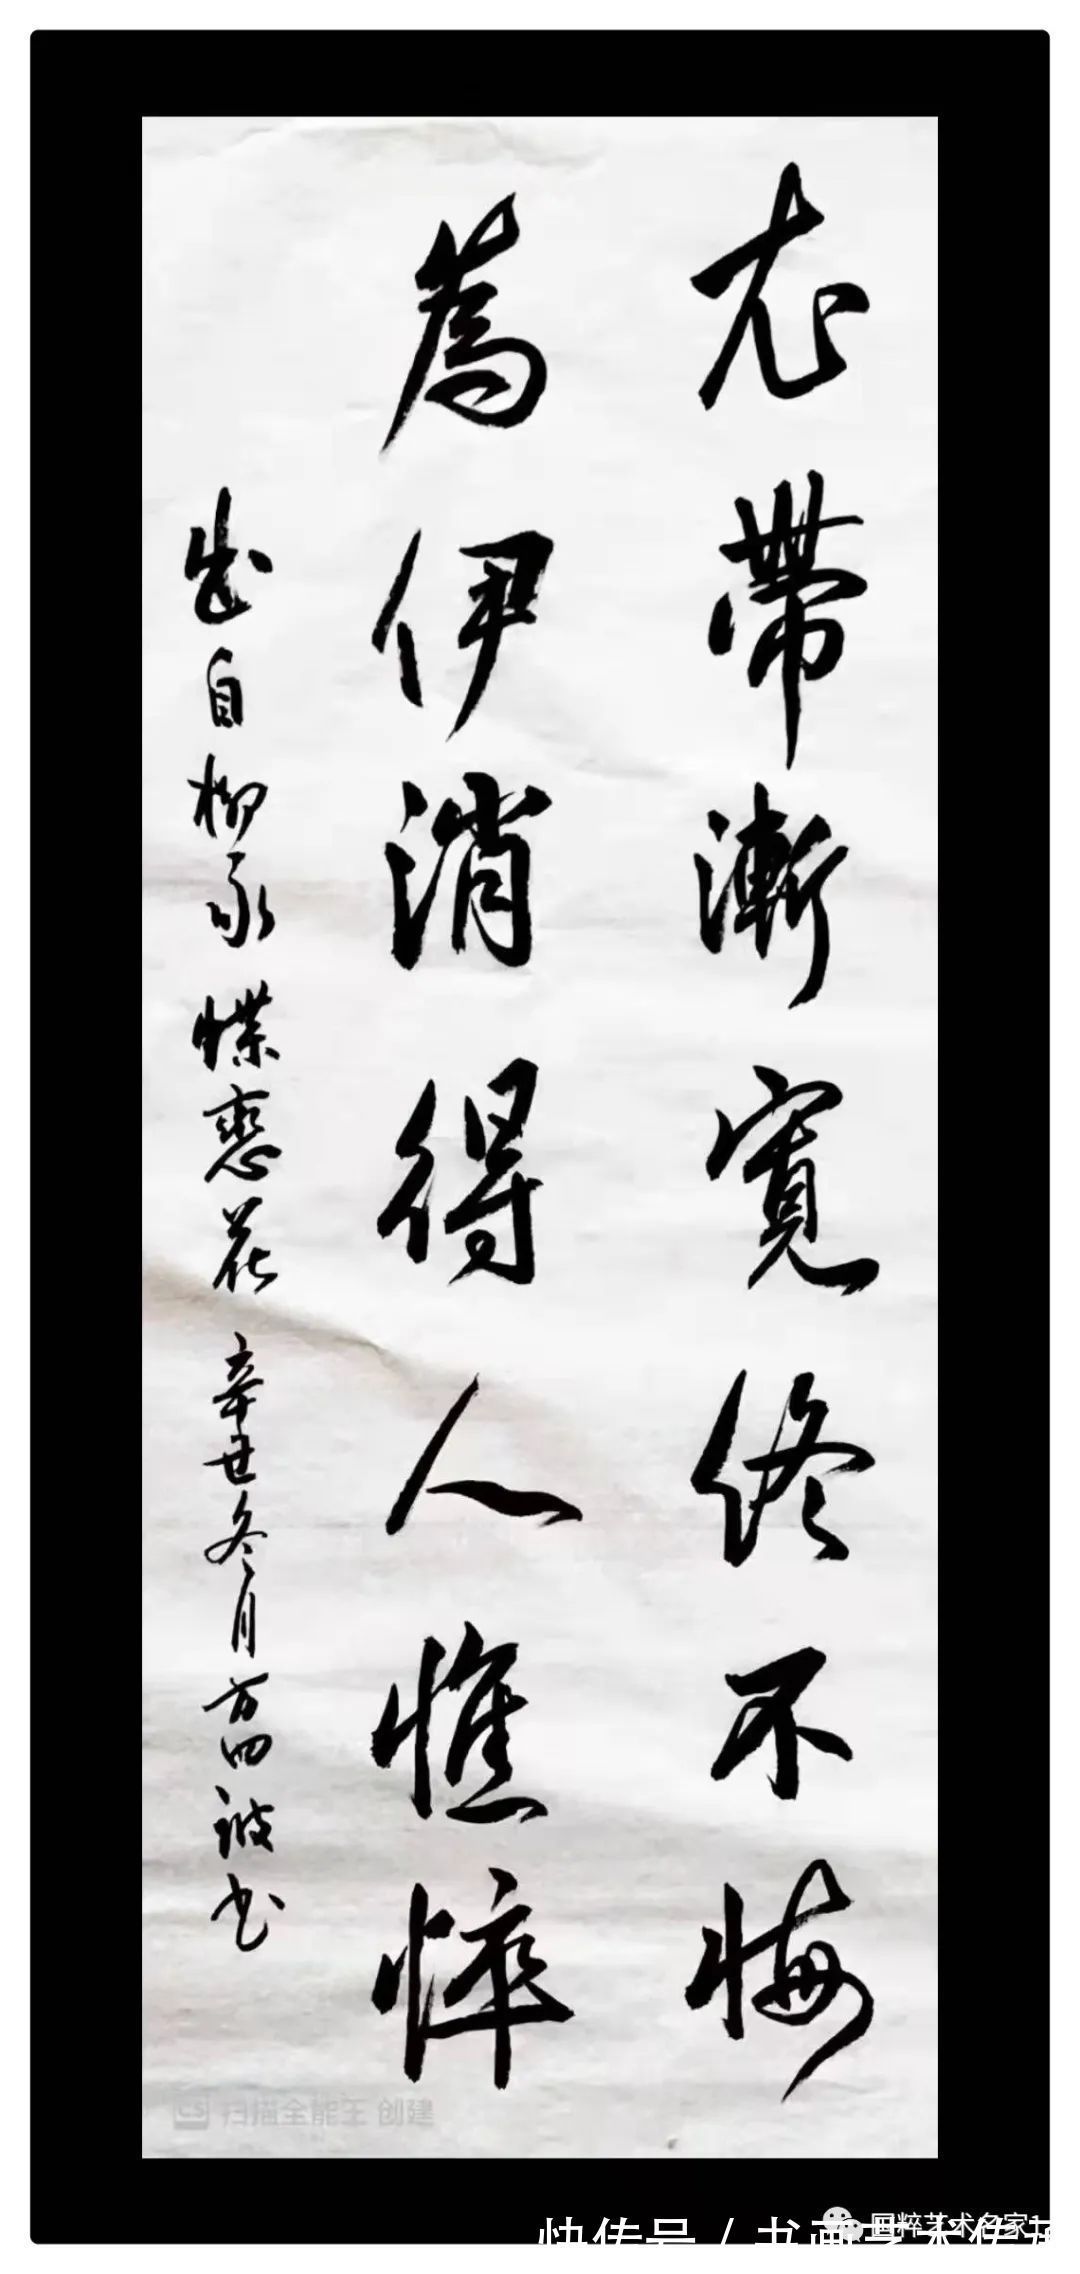 衣帶漸寬終不悔
為伊消得人憔悴
出自柳永蝶戀花 辛丑冬月
扫描全能王 创建
快传号 / 书画艺术传
国粹艺术名家